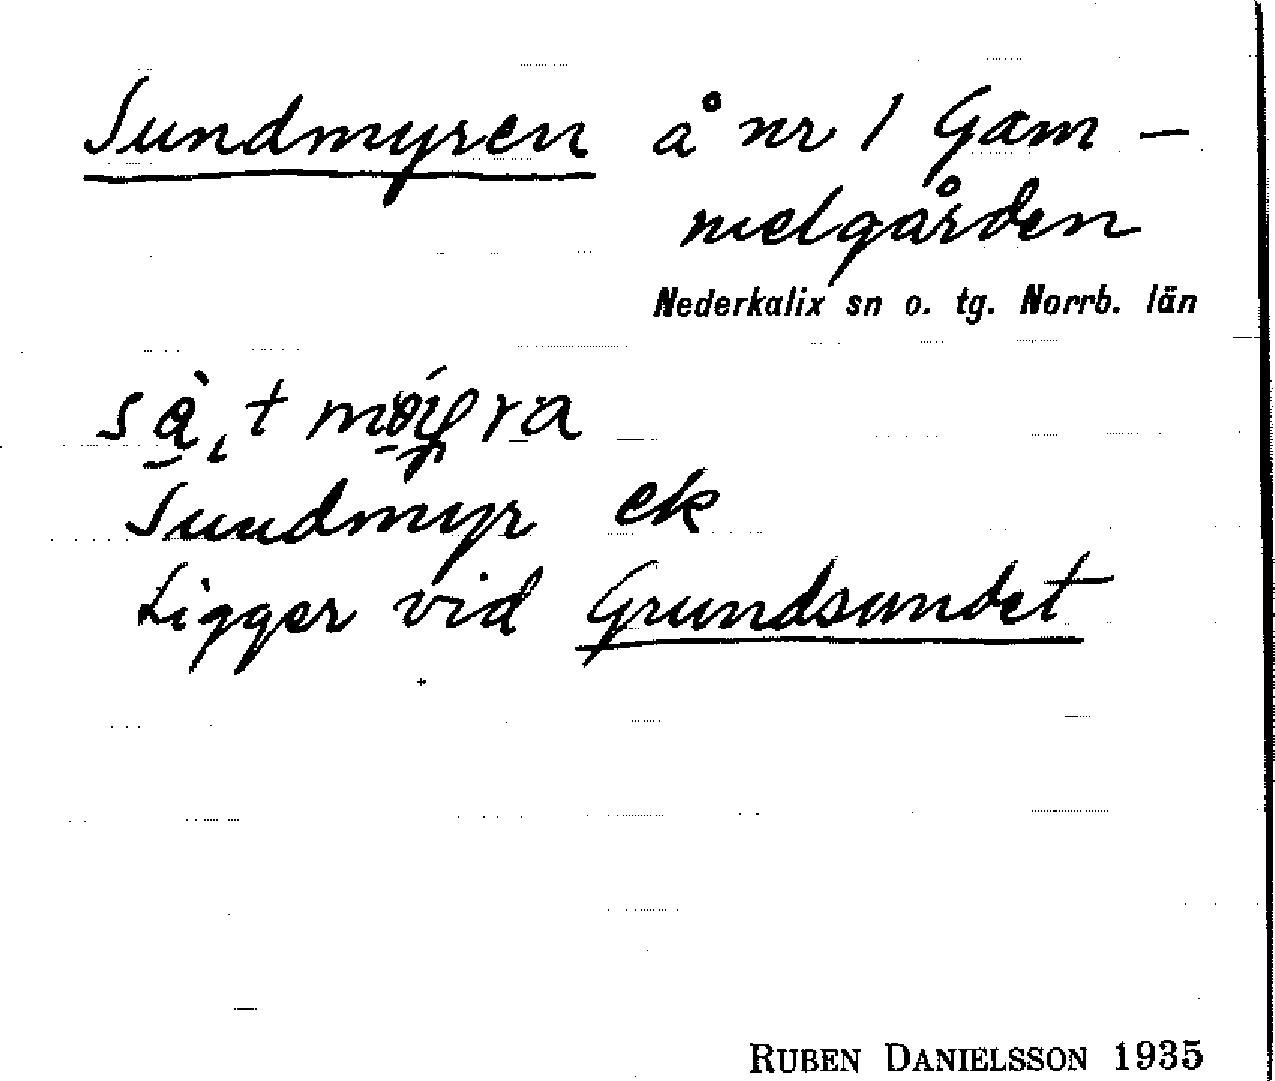 Sundmyren å nr 1 Gam-
melgården
Nederkalix sn o. tg. Norrb. län
Sundmyr ek
Ligger vid Grundsundet
RUBEN DANIELSSON 1935